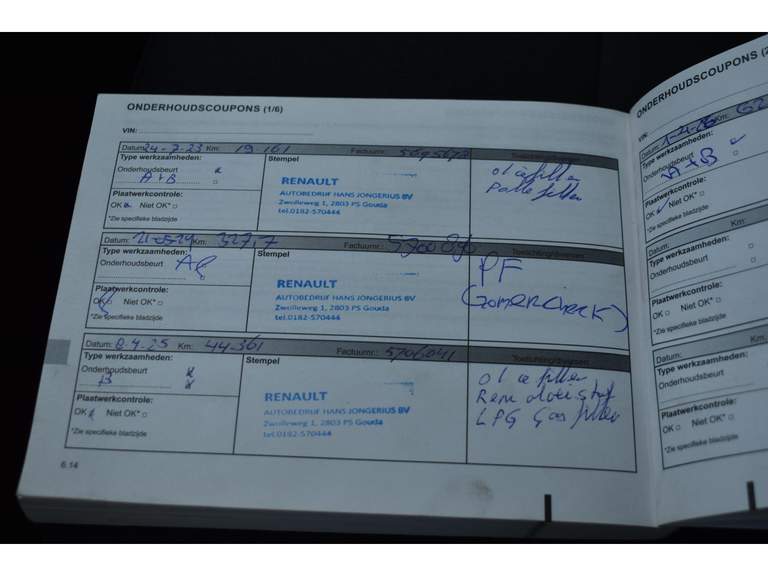 ONDERHOUDSCOUPONS (1/6)
VIN:
Datum: 24-7-23 Km: 19.161 Factuurnr.:
Type werkzaamheden: Stempel
Onderhoudsbeurt
A+B
Plaatwerkcontrole:
OK Niet OK*
*Zie specifieke bladzijde
RENAULT
AUTOBEDRIJF HANS JONGERIUS BV
Zwolleweg 1, 2803 PS Gouda
tel.0182-570444
oliefilter
Pollefilter
Datum: 21-05-24 Km: 32717 Factuurnr.:
Type werkzaamheden: Stempel
Onderhoudsbeurt
Plaatwerkcontrole:
OK Niet OK*
*Zie specifieke bladzijde
RENAULT
AUTOBEDRIJF HANS JONGERIUS BV
Zwolleweg 1, 2803 PS Gouda
tel.0182-570444
PF
(Zomercheck)
Datum: 8.4.25 Km: 44.361 Factuurnr.: 5706041
Type werkzaamheden: Stempel
Onderhoudsbeurt
B
Plaatwerkcontrole:
OK Niet OK*
*Zie specifieke bladzijde
RENAULT
AUTOBEDRIJF HANS JONGERIUS BV
Zwolleweg 1, 2803 PS Gouda
tel.0182-570444
oliefilter
Remvloeistof
LPG Gasfilter
6.14
ONDERHOUDSCOUPONS (2
VIN:
Datum: Km:
Type werkzaamheden:
Onderhoudsbeurt
A+B
Plaatwerkcontrole:
OK Niet OK*
*Zie specifieke bladzijde
Datum: Km:
Type werkzaamheden:
Onderhoudsbeurt
Plaatwerkcontrole:
OK Niet OK*
*Zie specifieke bladzijde
Datum: Km:
Type werkzaamheden:
Onderhoudsbeurt
Plaatwerkcontrole:
OK Niet OK*
*Zie specifieke bladzijde